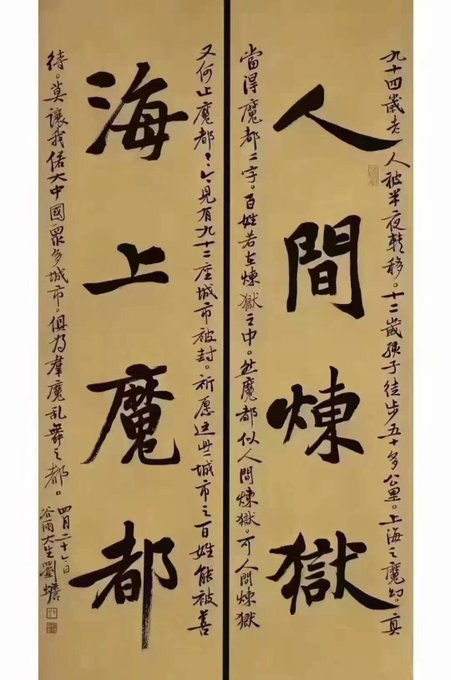 人間煉獄
海上魔都
九十四歲老人被半夜轉移。十二歲孩子徒步五十多公里。上海之魔幻。真
當得魔都二字。百姓若在煉獄之中。然魔都似人間煉獄。可人間煉獄
又何止魔都？今見有九十二座城市被封。祈愿这些城市之百姓能被善
待。莫讓我偌大中國眾多城市。俱为羣魔乱舞之都。
四月二十六日
谷雨大生劉